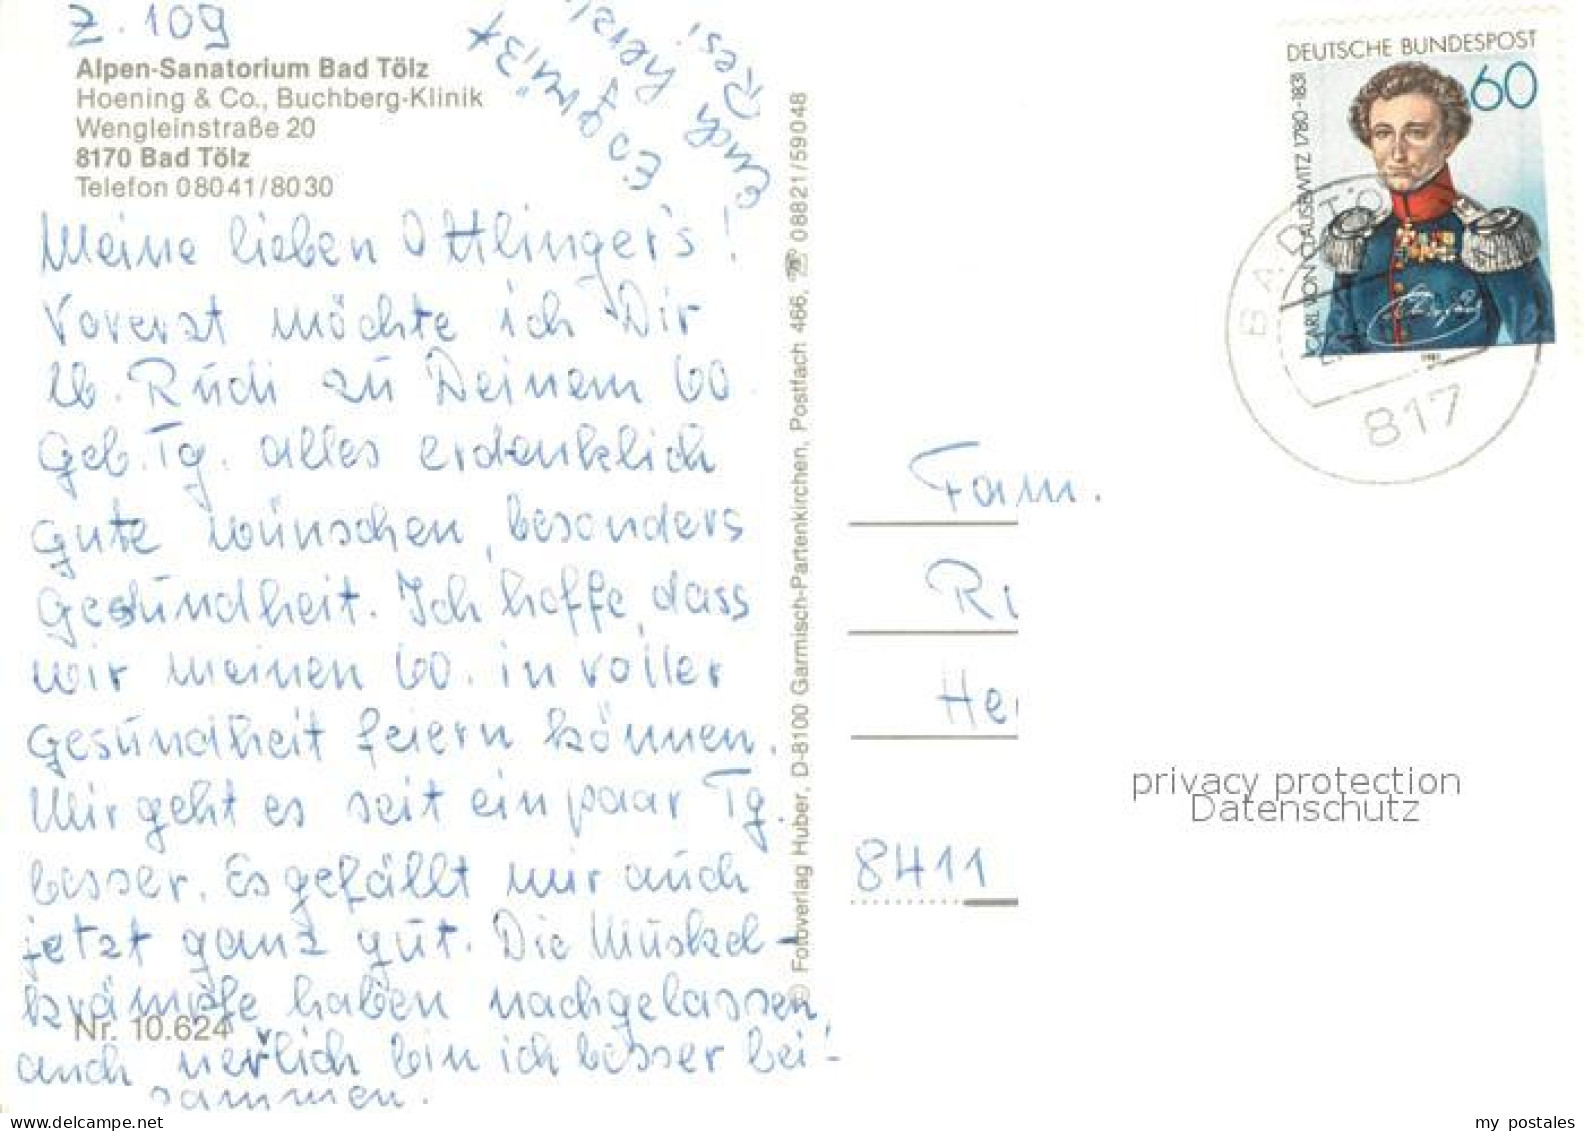 Z. 109
Alpen-Sanatorium Bad Tölz
Hoening & Co., Buchberg-Klinik
Wengleinstraße 20
8170 Bad Tölz
Telefon 08041/8030
Meine lieben Ottlinger's!
Vorerst möchte ich Dir
lb. Rudi zu Deinem 60.
Geb. Tg. alles erdenklich
Gute wünschen, besonders
Gesundheit. Ich hoffe, dass
wir meinen 60. in voller
Gesundheit feiern können.
Mir geht es seit ein paar Tg.
besser. Es gefällt mir auch
jetzt ganz gut. Die Muskel-
krämpfe haben nachgelassen,
auch nervlich bin ich besser bei-
sammen.
Es grüßt
euch herzl.
Resi
Nr. 10.624
© Fotoverlag Huber, D-8100 Garmisch-Partenkirchen, Postfach 466, ☏ 08821/59048
DEUTSCHE BUNDESPOST
60
CARL VON CLAUSEWITZ 1780-1831
1981
BAD TÖ
817
Fam.
8411
privacy protection
Datenschutz
www.delcampe.net
my postales